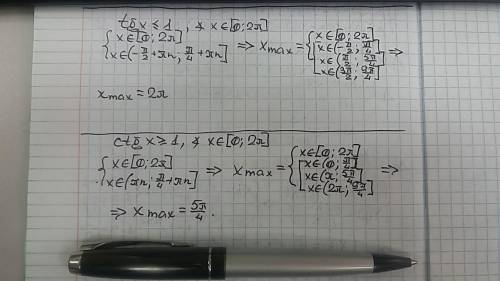 tg x ≤ 1, x ∈ [0; 2π]
{ x ∈ [0; 2π]
x ∈ (-π/2 + πn; π/4 + πn] ⇒ x max = { x ∈ [0; 2π]
[ x ∈ (-π/2; π/4]
x ∈ (π/2; 5π/4]
x ∈ (3π/2; 9π/4] ⇒
x max = 2π
ctg x ≥ 1, x ∈ [0; 2π]
{ x ∈ [0; 2π]
x ∈ (πn; π/4 + πn] ⇒ x max = { x ∈ [0; 2π]
[ x ∈ (0; π/4]
x ∈ (π; 5π/4]
x ∈ (2π; 9π/4] ⇒
⇒ x max = 5π/4.